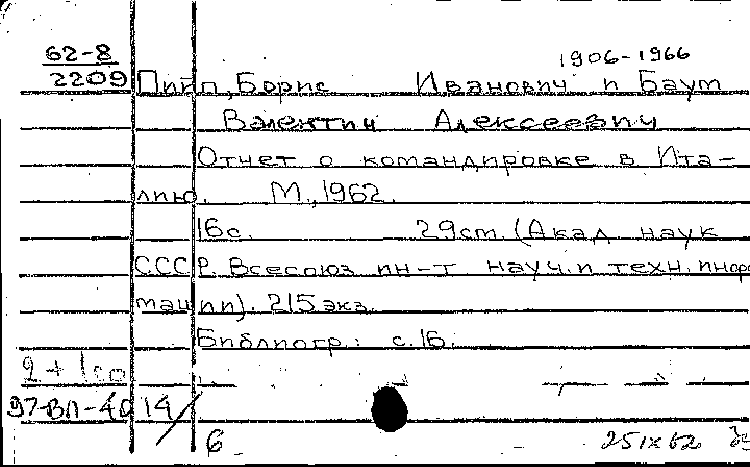 62-8
1906-1966
2209 Пийп, Борис Иванович и Баут
Валентин Алексеевич
Отчет о командировке в Ита-
лию. М., 1962.
16с. 29см. (Акад. наук
СССР. Всесоюз. ин-т науч. и техн. инфор
мации). 215 экз.
Библиогр.: с.16.
2 + 1со
97-ВЛ-40 14/6
25 IX 62